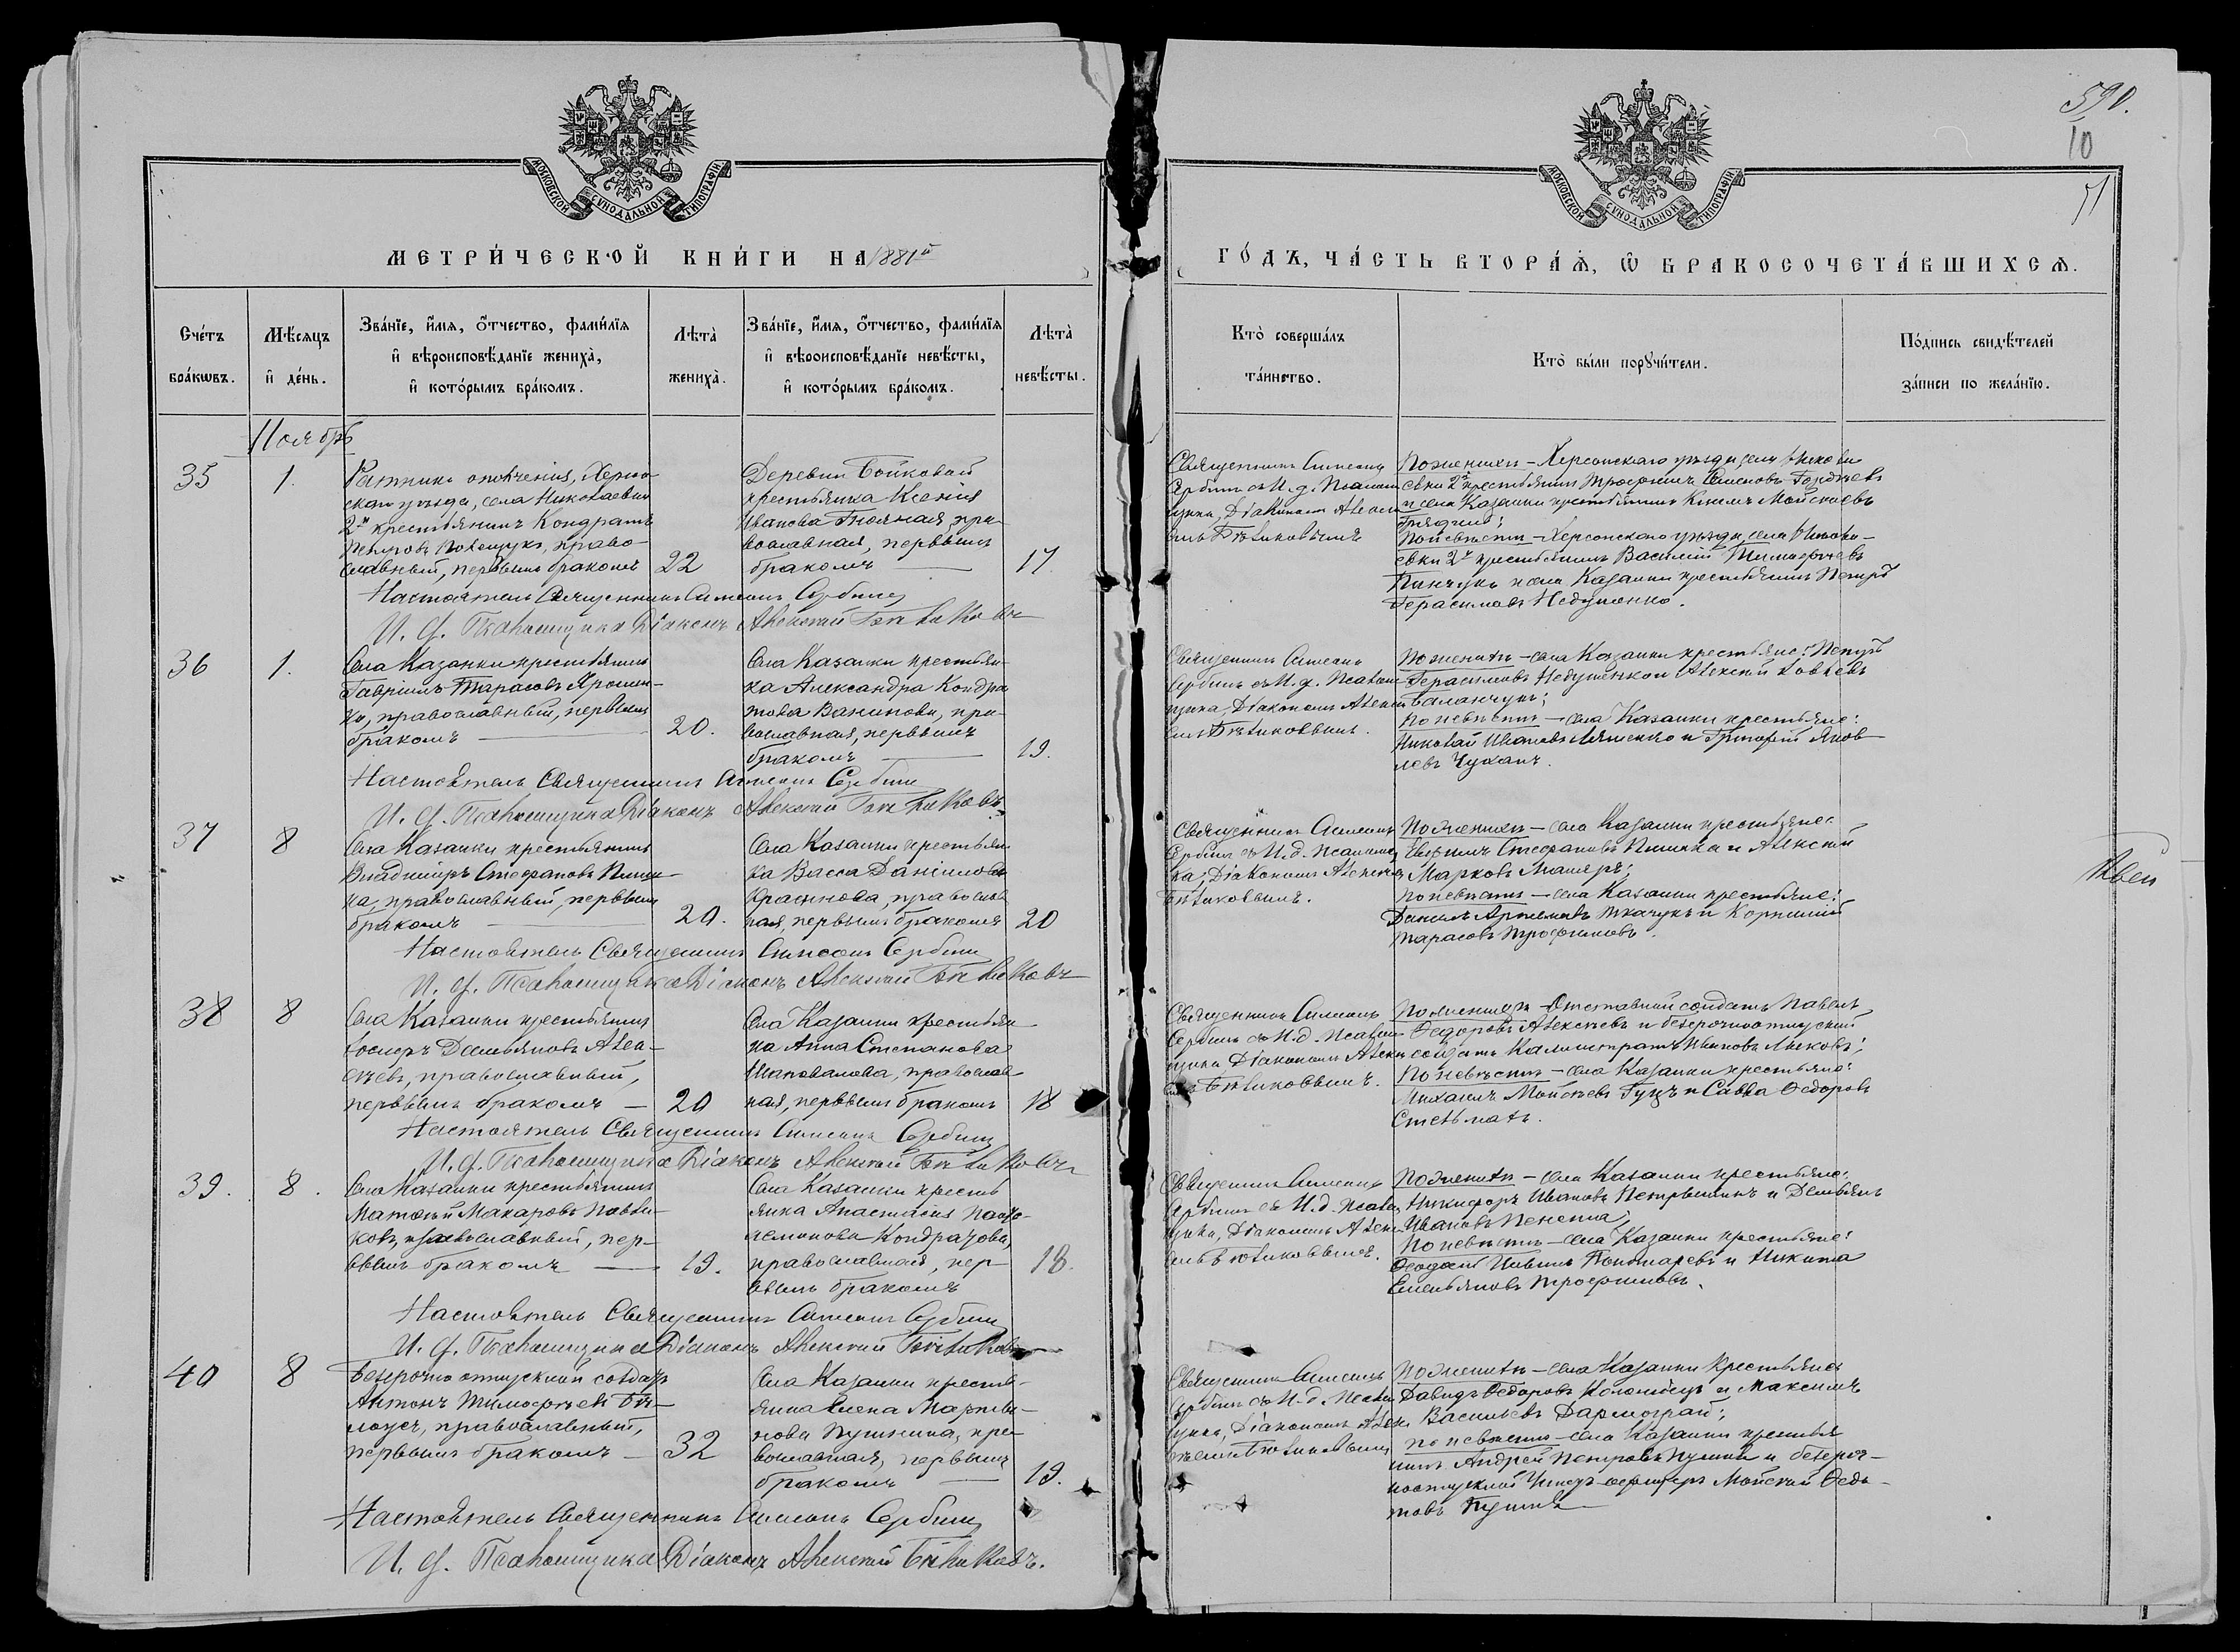 590.
10
71
МОСКОВСКОЙ СѴНОДАЛЬНОЙ ТИПОГРАФІИ
МОСКОВСКОЙ СѴНОДАЛЬНОЙ ТИПОГРАФІИ
МЕТРИ́ЧЕСКОЙ КНИ́ГИ НА 1881й
ГО́ДЪ, ЧА́СТЬ ВТОРА́Ѧ, Ѿ БРАКОСОЧЕТА́ВШИХСѦ.
Сче́тъ бра́кѡвъ.
Мѣ́сѧцъ и҆ де́нь.
Зва́нїе, и҆́мѧ, ѻ҆́тчество, фами́лїѧ и҆ вѣроисповѣ́данїе жениха̀, и҆ кото́рымъ бра́комъ.
Лѣта̀ жениха̀.
Зва́нїе, и҆́мѧ, ѻ҆́тчество, фами́лїѧ и҆ вѣроисповѣ́данїе невѣ́сты, и҆ кото́рымъ бра́комъ.
Лѣта̀ невѣ́сты.
Кто̀ соверша́лъ та́инство.
Кто̀ бы́ли порꙋчи́тели.
По́дпись свидѣ́телей за́писи по жела́нїю.
Ноябрь
35
1.
Ратникъ ополченія, Херсо-
скаго уѣзда, села Николаевки
2й крестьянинъ Кондратъ
Петровъ Полещукъ, право-
славный, первымъ бракомъ
22
Деревни Бойковой
крестьянка Ксенія
Иванова Гнояная, пра-
вославная, первымъ
бракомъ
17
Священникъ Симеонъ
Сербинъ съ И. д. Псалом-
щика, Діакономъ Алексѣ-
емъ Бѣликовымъ
По женихѣ – Херсонскаго уѣзда, села Никола-
евки 2й крестьянинъ Трофимъ Семеновъ Гордѣевъ
и села Казанки крестьянинъ Климъ Мойсеевъ
По невѣстѣ – Херсонскаго уѣзда, села Никола-
евки 2й крестьянинъ Василій Тимофѣевъ
Панчукъ и села Казанки крестьянинъ Петръ
Герасимовъ Недуженко.
Настоятель Священникъ Симеонъ Сербинъ
И. д. Псаломщика Діаконъ Алексѣй Бѣликовъ
36
1.
Села Казанки крестьянинъ
Гавріилъ Тарасовъ Яромен-
ко, православный, первымъ
бракомъ
20.
Села Казанки крестьян-
ка Александра Кондра-
това Ванинова, пра-
вославная, первымъ
бракомъ
19.
Священникъ Симеонъ
Сербинъ съ И. д. Псалом-
щика, Діакономъ Алексѣ-
емъ Бѣликовымъ.
По женихѣ – села Казанки крестьяне: Петръ
Герасимовъ Недуженко и Алексѣй Ковлевъ
Баланчукъ;
По невѣстѣ – села Казанки крестьяне:
Николай Ивановъ Ляшенко и Григорій Яков-
левъ Чуханъ.
Настоятель Священникъ Симеонъ Сербинъ
И. д. Псаломщика Діаконъ Алексѣй Бѣликовъ
37
8
Села Казанки крестьянинъ
Владиміръ Стефановъ Пиши-
ка, православный, первымъ
бракомъ
20.
Села Казанки крестьян-
ка Васса Даниілова
Краснова, православ-
ная, первымъ бракомъ
20
Священникъ Симеонъ
Сербинъ съ И. д. Псаломщи-
ка, Діакономъ Алексѣемъ
Бѣликовымъ.
По женихѣ – села Казанки крестьяне:
Евфимъ Стефановъ Пишика и Алексѣй
Марковъ Маляръ;
По невѣстѣ – села Казанки крестьяне:
Данилъ Артемовъ Ткачукъ и Корнилій
Тарасовъ Трофимовъ.
Настоятель Священникъ Симеонъ Сербинъ
И. д. Псаломщика Діаконъ Алексѣй Бѣликовъ
38
8
Села Казанки крестьянинъ
Іосифъ Демьяновъ Алек-
сѣевъ, православный,
первымъ бракомъ
20
Села Казанки крестьян-
ка Анна Степанова
Шаповалова, православ-
ная, первымъ бракомъ
18
Священникъ Симеонъ
Сербинъ съ И. д. Псалом-
щика Діакономъ Алексѣ-
емъ Бѣликовымъ.
По женихѣ – Отставной солдатъ Павелъ
Ѳедоровъ Алексѣевъ и безсрочноотпускной
солдатъ Калистратъ Ивановъ Лысковъ;
По невѣстѣ – села Казанки крестьяне:
Михаилъ Мойсеевъ Гуцъ и Савва Ѳедоровъ
Стельмахъ.
Настоятель Священникъ Симеонъ Сербинъ
И. д. Псаломщика Діаконъ Алексѣй Бѣликовъ
39.
8.
Села Казанки крестьянинъ
Матѳѣй Макаровъ Новви-
ковъ, православный, пер-
вымъ бракомъ
19.
Села Казанки кресть-
янка Анастасія Панте-
лемонова Кондратова,
православная, пер-
вымъ бракомъ
18.
Священникъ Симеонъ
Сербинъ съ И. д. Псалом-
щика, Діакономъ Алексѣ-
емъ Бѣликовымъ.
По женихѣ – села Казанки крестьяне:
Никифоръ Ивановъ Петрышинъ и Демьянъ
Ивановъ Пенетка;
По невѣстѣ – села Казанки крестьяне:
Пономаревъ и Никита
Емельяновъ Трофимовъ.
Настоятель Священникъ Симеонъ Сербинъ
И. д. Псаломщика Діаконъ Алексѣй Бѣликовъ
40
8
Безсрочно отпускной солдатъ
Антонъ Тимофѣевъ Бѣ-
лоусъ, православный,
первымъ бракомъ
32
Села Казанки кресть-
янка Елена Марты-
нова Пушкина, пра-
вославная, первымъ
бракомъ
19.
Священникъ Симеонъ
Сербинъ съ И. д. Псалом-
щика, Діакономъ Алек-
сѣемъ Бѣликовымъ
По женихѣ – села Казанки крестьяне
Давидъ Ѳедоровъ Коломіецъ и Максимъ
Васильевъ Дармограй;
По невѣстѣ – села Казанки крестья-
нинъ Андрей Петровъ Пушкинъ и безсроч-
ноотпускной Унтеръ-офицеръ Мойсей Ѳедо-
товъ
Настоятель Священникъ Симеонъ Сербинъ
И. д. Псаломщика Діаконъ Алексѣй Бѣликовъ.